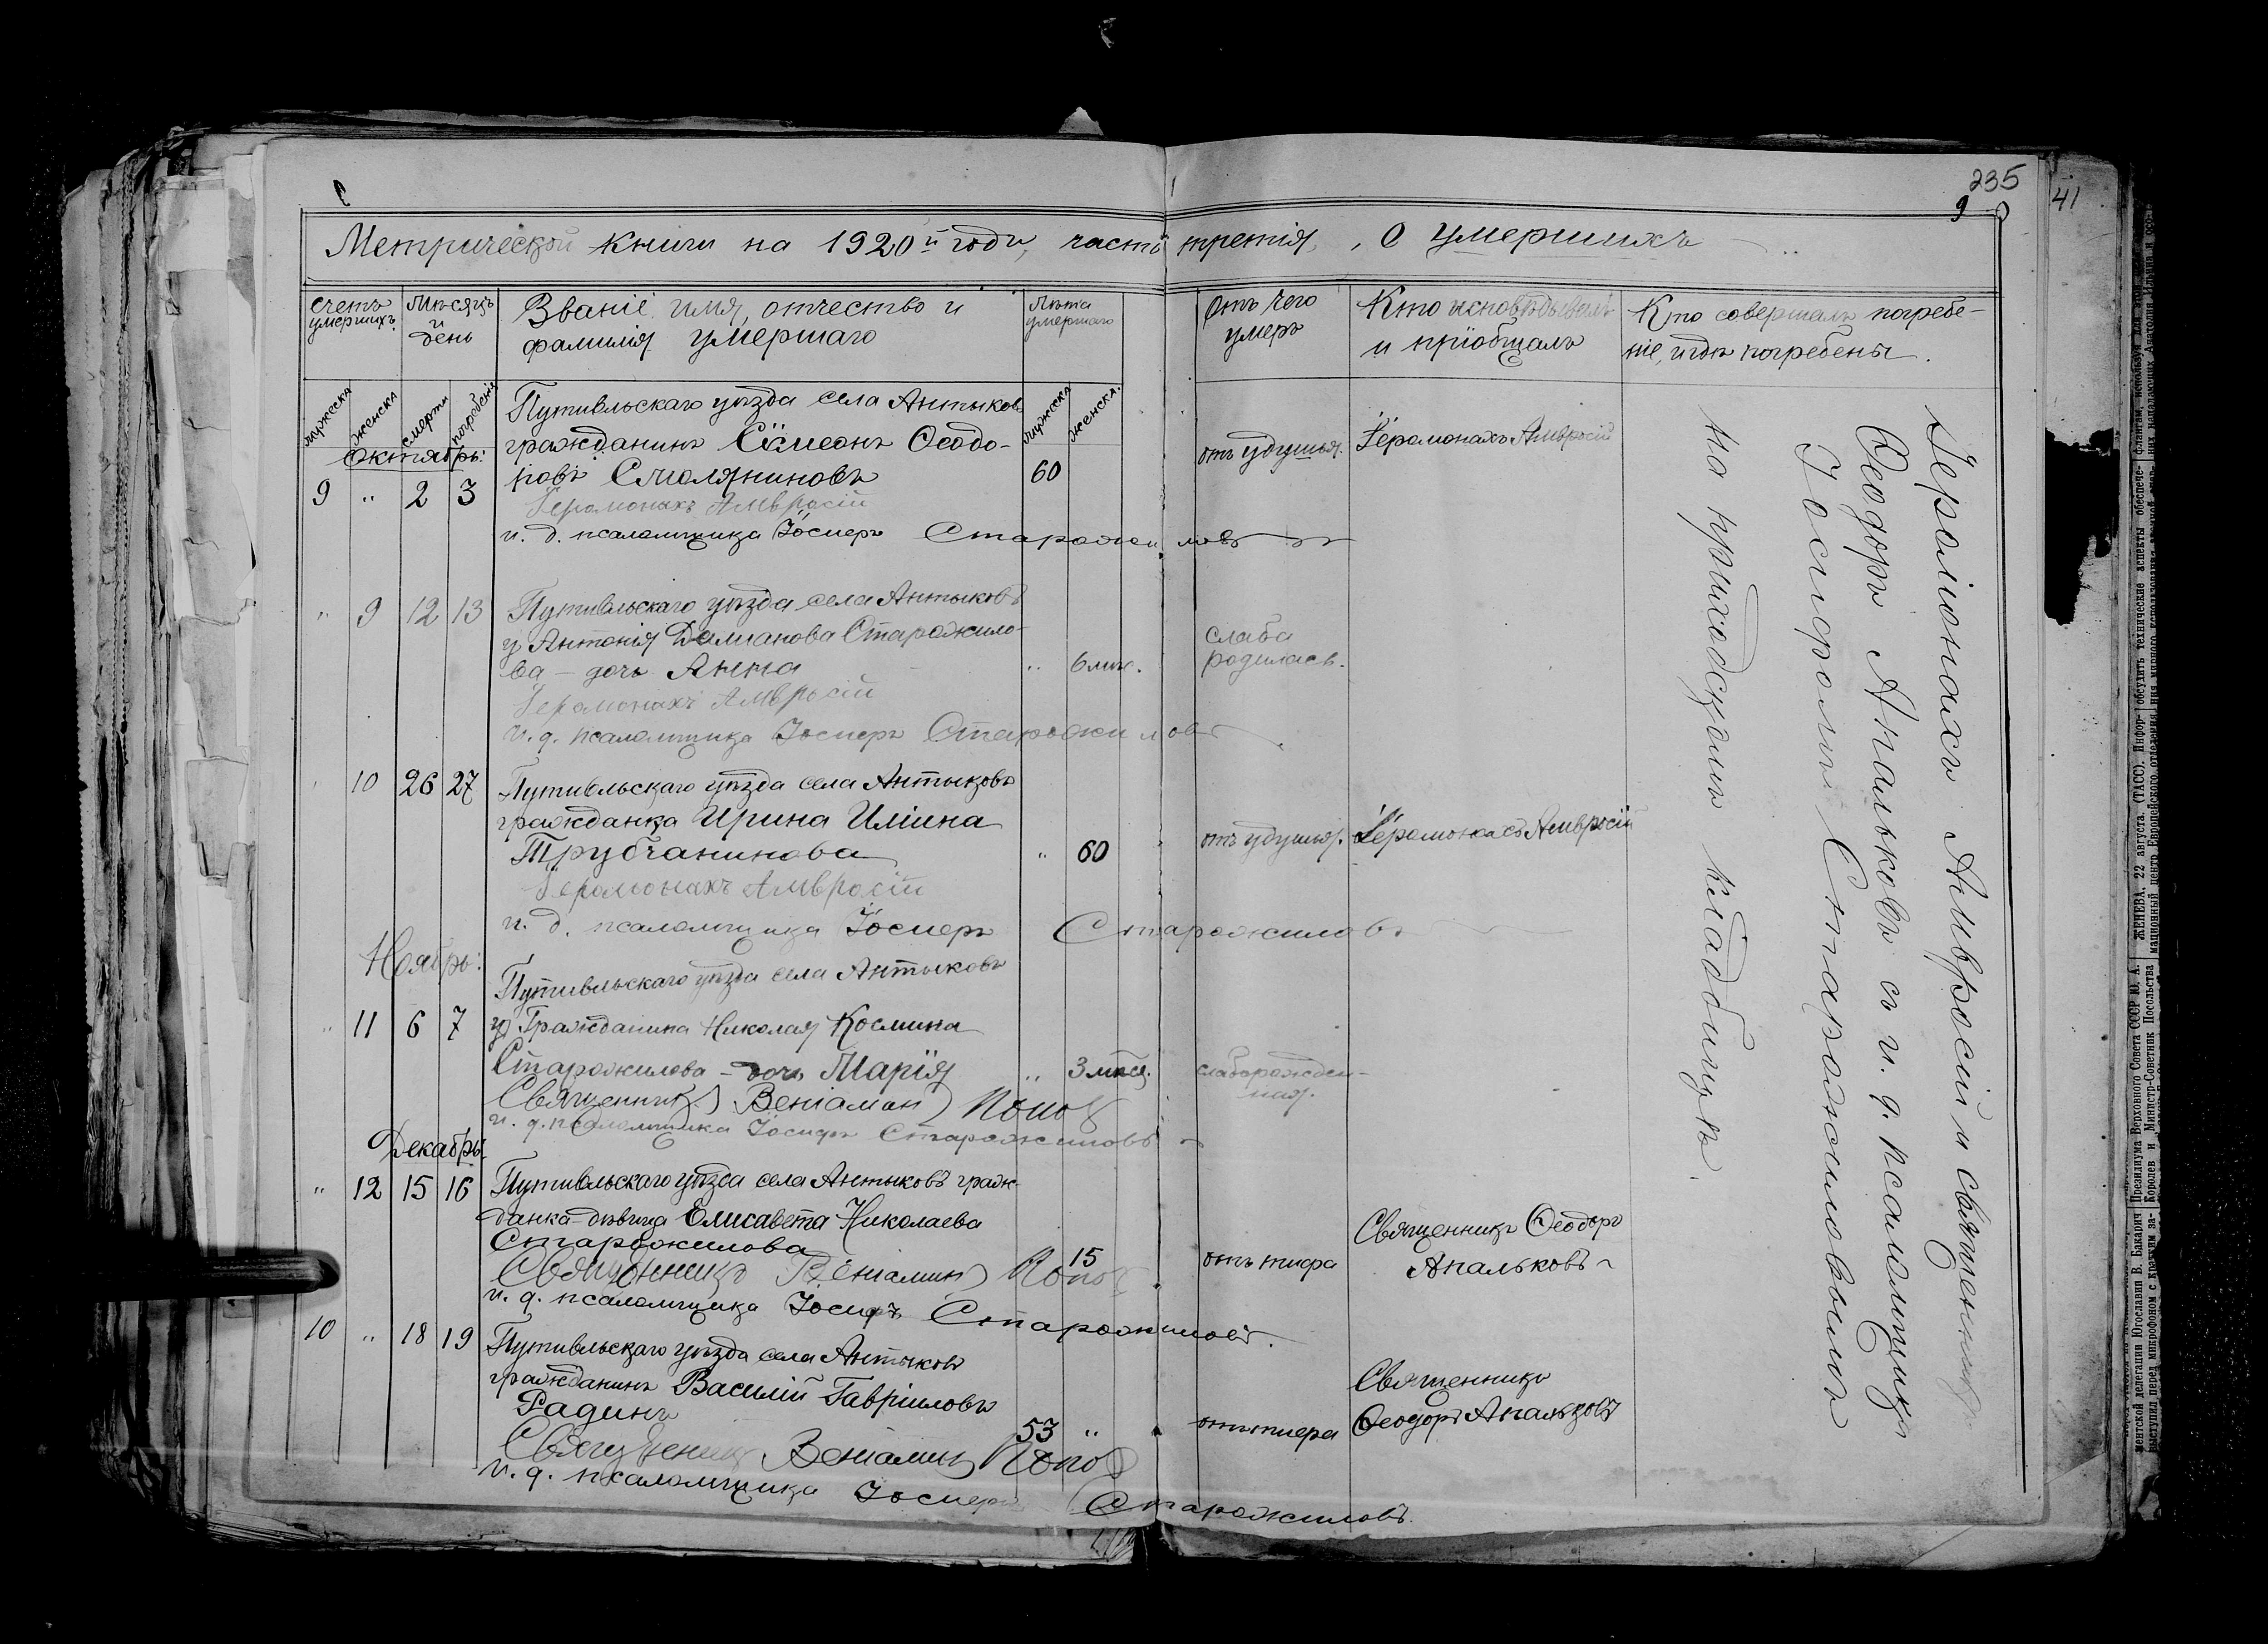 235
9
41
Метрической книги на 1920й годъ, часть третія, о умершихъ
счетъ умершихъ.
Мѣсяцъ и день
Званіе, имя, отчество и
фамилія умершаго
Лѣта умершаго
Отъ чего
умеръ
Кто исповѣдывалъ
и пріобщалъ
Кто совершалъ погребе-
ніе, и гдѣ погребены.
мужеска
женска
смерти
погребенія
мужеска
женска.
Октябрь:
Путивльскаго уѣзда села Антыковъ
гражданинъ Сѵмеонъ Ѳеодо-
9 " 2 3 ровъ Смоляниновъ 60 отъ удушья. Іеромонахъ Амвросій
Іеромонахъ Амвросій
и. д. псаломщика Іосифъ Старожиловъ
" 9 12 13 Путивльскаго уѣзда села Антыковъ
у Антонія Даміанова Старожило-
ва – дочь Анна " 6 мѣс. слаба
родилась.
Іеромонахъ Амвросій
и. д. псаломщика Іосифъ Старожиловъ
" 10 26 27 Путивльскаго уѣзда села Антыковъ
гражданка Ирина Иліина
Трубчанинова " 60 отъ удушья. Іеромонахъ Амвросій
Іеромонахъ Амвросій
и. д. псаломщика Іосифъ Старожиловъ
Ноябрь:
Путивльскаго уѣзда села Антыковъ
" 11 6 7 у Гражданина Николая Космина
Старожилова – дочь Марія " 3 мѣсц. слаборожден-
ная.
Священникъ Веніаминъ Поповъ
и. д. псаломщика Іосифъ Старожиловъ
Декабрь.
" 12 15 16 Путивльскаго уѣзда села Антыковъ граж-
данка-дѣвица Елисавета Николаева
Старожилова 15 отъ тифа Священникъ Ѳеодоръ
Апальковъ
Священникъ Веніаминъ Поповъ
и. д. псаломщика Іосифъ Старожиловъ.
10 " 18 19 Путивльскаго уѣзда села Антыковъ
гражданинъ Василій Гавріиловъ
Радинъ 53 " отъ тифа Священникъ
Ѳеодоръ Апальковъ
Священникъ Веніаминъ Поповъ
и. д. псаломщика Іосифъ Старожиловъ.
Іеромонахъ Амвросій и священникъ
Ѳеодоръ Апальковъ съ и. д. псаломщика
Іосифомъ Старожиловымъ
на приходскомъ кладбищѣ.
ЖЕНЕВА, 22 августа. (ТАСС).